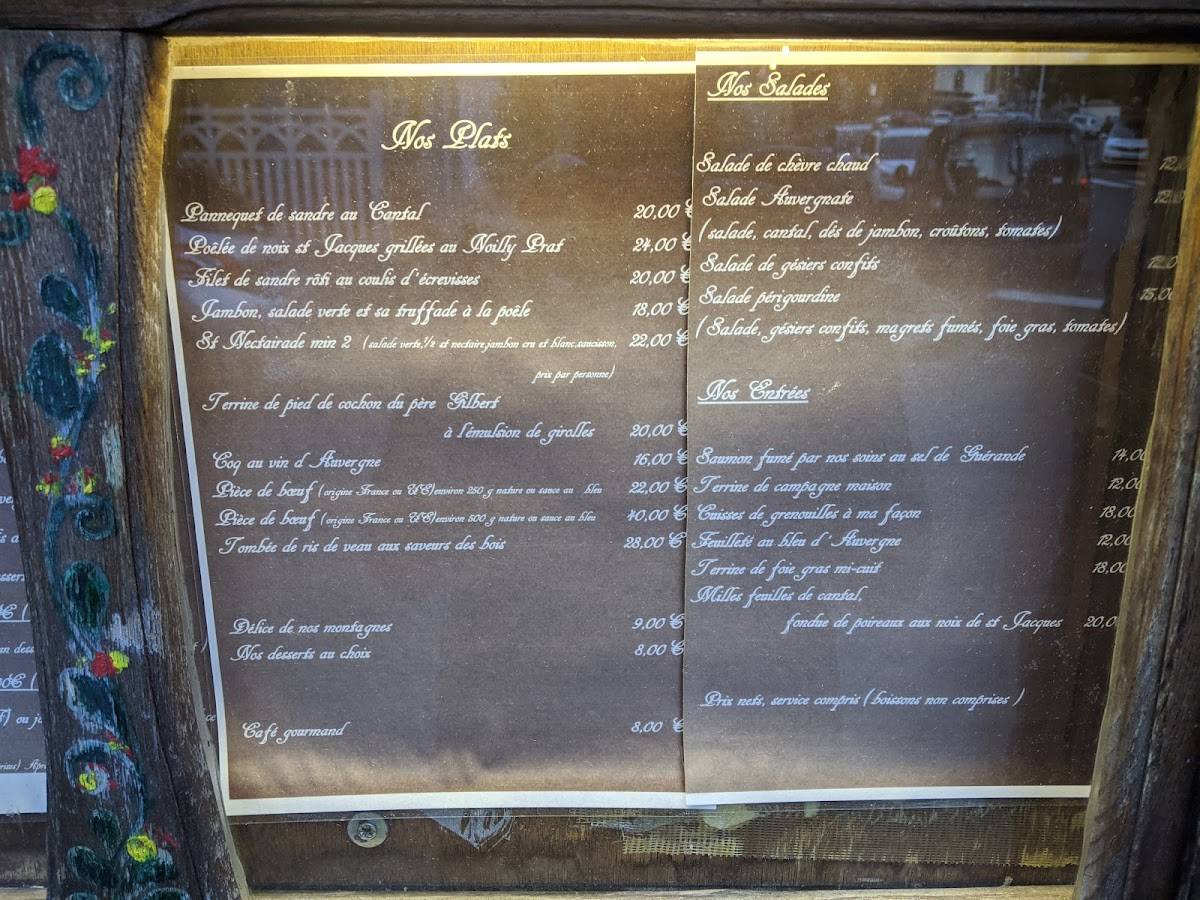 Nos Plats
Pannequet de sandre au Cantal 20,00 €
Poêlée de noix st Jacques grillées au Noilly Prat 24,00 €
Filet de sandre rôti au coulis d'écrevisses 20,00 €
Jambon, salade verte et sa truffade à la poêle 18,00 €
St Nectairade min 2 (salade verte,½ st nectaire,jambon cru et blanc,saucisson, 22,00 €
prix par personne)
Terrine de pied de cochon du père Gilbert
à l'émulsion de girolles 20,00 €
Coq au vin d'Auvergne 16,00 €
Pièce de bœuf (origine France ou UE)environ 250 g nature ou sauce au bleu 22,00 €
Pièce de bœuf (origine France ou UE)environ 500 g nature ou sauce au bleu 40,00 €
Tombée de ris de veau aux saveurs des bois 28,00 €
Délice de nos montagnes 9,00 €
Nos desserts au choix 8,00 €
Café gourmand 8,00 €
Nos Salades
Salade de chèvre chaud
Salade Auvergnate
(salade, cantal, dés de jambon, croûtons, tomates)
Salade de gésiers confits
Salade périgourdine 15,0
(Salade, gésiers confits, magrets fumés, foie gras, tomates)
Nos Entrées
Saumon fumé par nos soins au sel de Guérande 14,0
Terrine de campagne maison 12,0
Cuisses de grenouilles à ma façon 18,0
Feuilleté au bleu d'Auvergne 12,0
Terrine de foie gras mi-cuit 18,0
Milles feuilles de cantal,
fondue de poireaux aux noix de st Jacques 20,0
Prix nets, service compris (boissons non comprises)